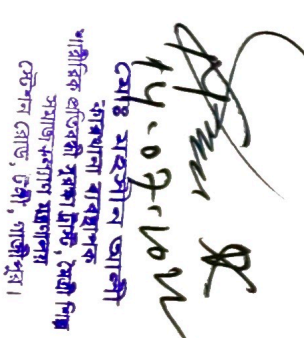 মোঃ মহসীন আলী
কারখানা ব্যবস্থাপক
শারীরিক প্রতিবন্ধী সুরক্ষা ট্রাস্ট, মৈত্রী শিল্প
সমাজকল্যাণ মন্ত্রণালয়
স্টেশন রোড, টঙ্গী, গাজীপুর।